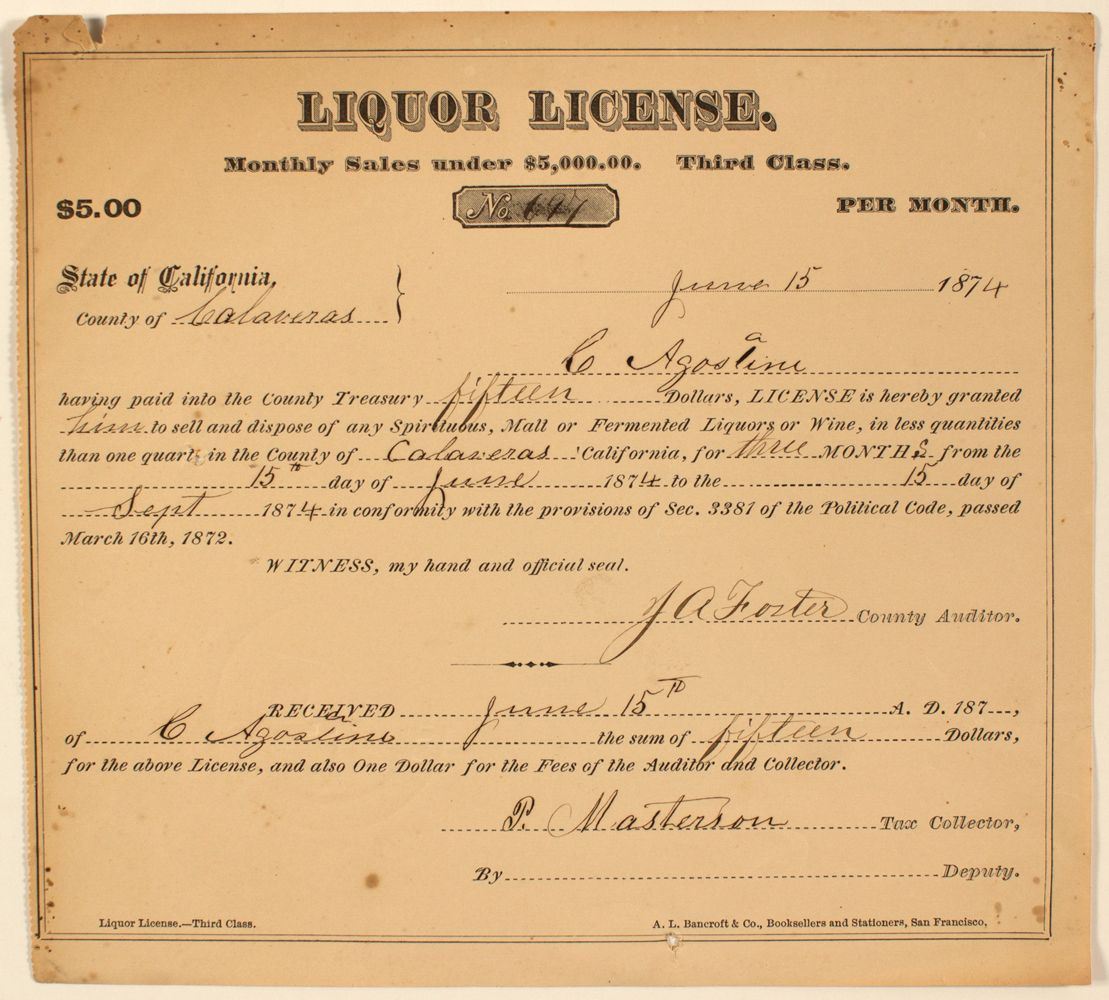 LIQUOR LICENSE.
Monthly Sales under $5,000.00. Third Class.
$5.00 No. 697 PER MONTH.
State of California,
County of Calaveras } June 15 1874
C Agostini
having paid into the County Treasury fifteen Dollars, LICENSE is hereby granted
him to sell and dispose of any Spirituous, Malt or Fermented Liquors or Wine, in less quantities
than one quart in the County of Calaveras California, for three MONTHS from the
15th day of June 1874 to the 15 day of
Sept 1874 in conformity with the provisions of Sec. 3381 of the Political Code, passed
March 16th, 1872.
WITNESS, my hand and official seal.
J A Foster County Auditor.
RECEIVED June 15th A. D. 187 ,
of C Agostini the sum of fifteen Dollars,
for the above License, and also One Dollar for the Fees of the Auditor and Collector.
P. Masterson Tax Collector,
By Deputy.
Liquor License.—Third Class. A. L. Bancroft & Co., Booksellers and Stationers, San Francisco.